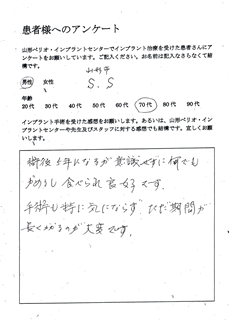 患者様へのアンケート
山形ペリオ・インプラントセンターでインプラント治療を受けた患者さんにア
ンケートをお願いしています。ご記入ください。お名前は記入なさらなくて結
構です。
山形市
男性 女性 S.S
年齢
20代 30代 40代 50代 60代 70代 80代 90代
インプラント手術を受けた感想をお願いします。あるいは、山形ペリオ・イン
プラントセンターや先生及びスタッフに対する感想でも結構です。宜しくお願
いします。
術後5年になるが意識せずに何でも
かめるし食べられ良好です。
手術も特に気にならず ただ期間が
長くかかるのが大変です。